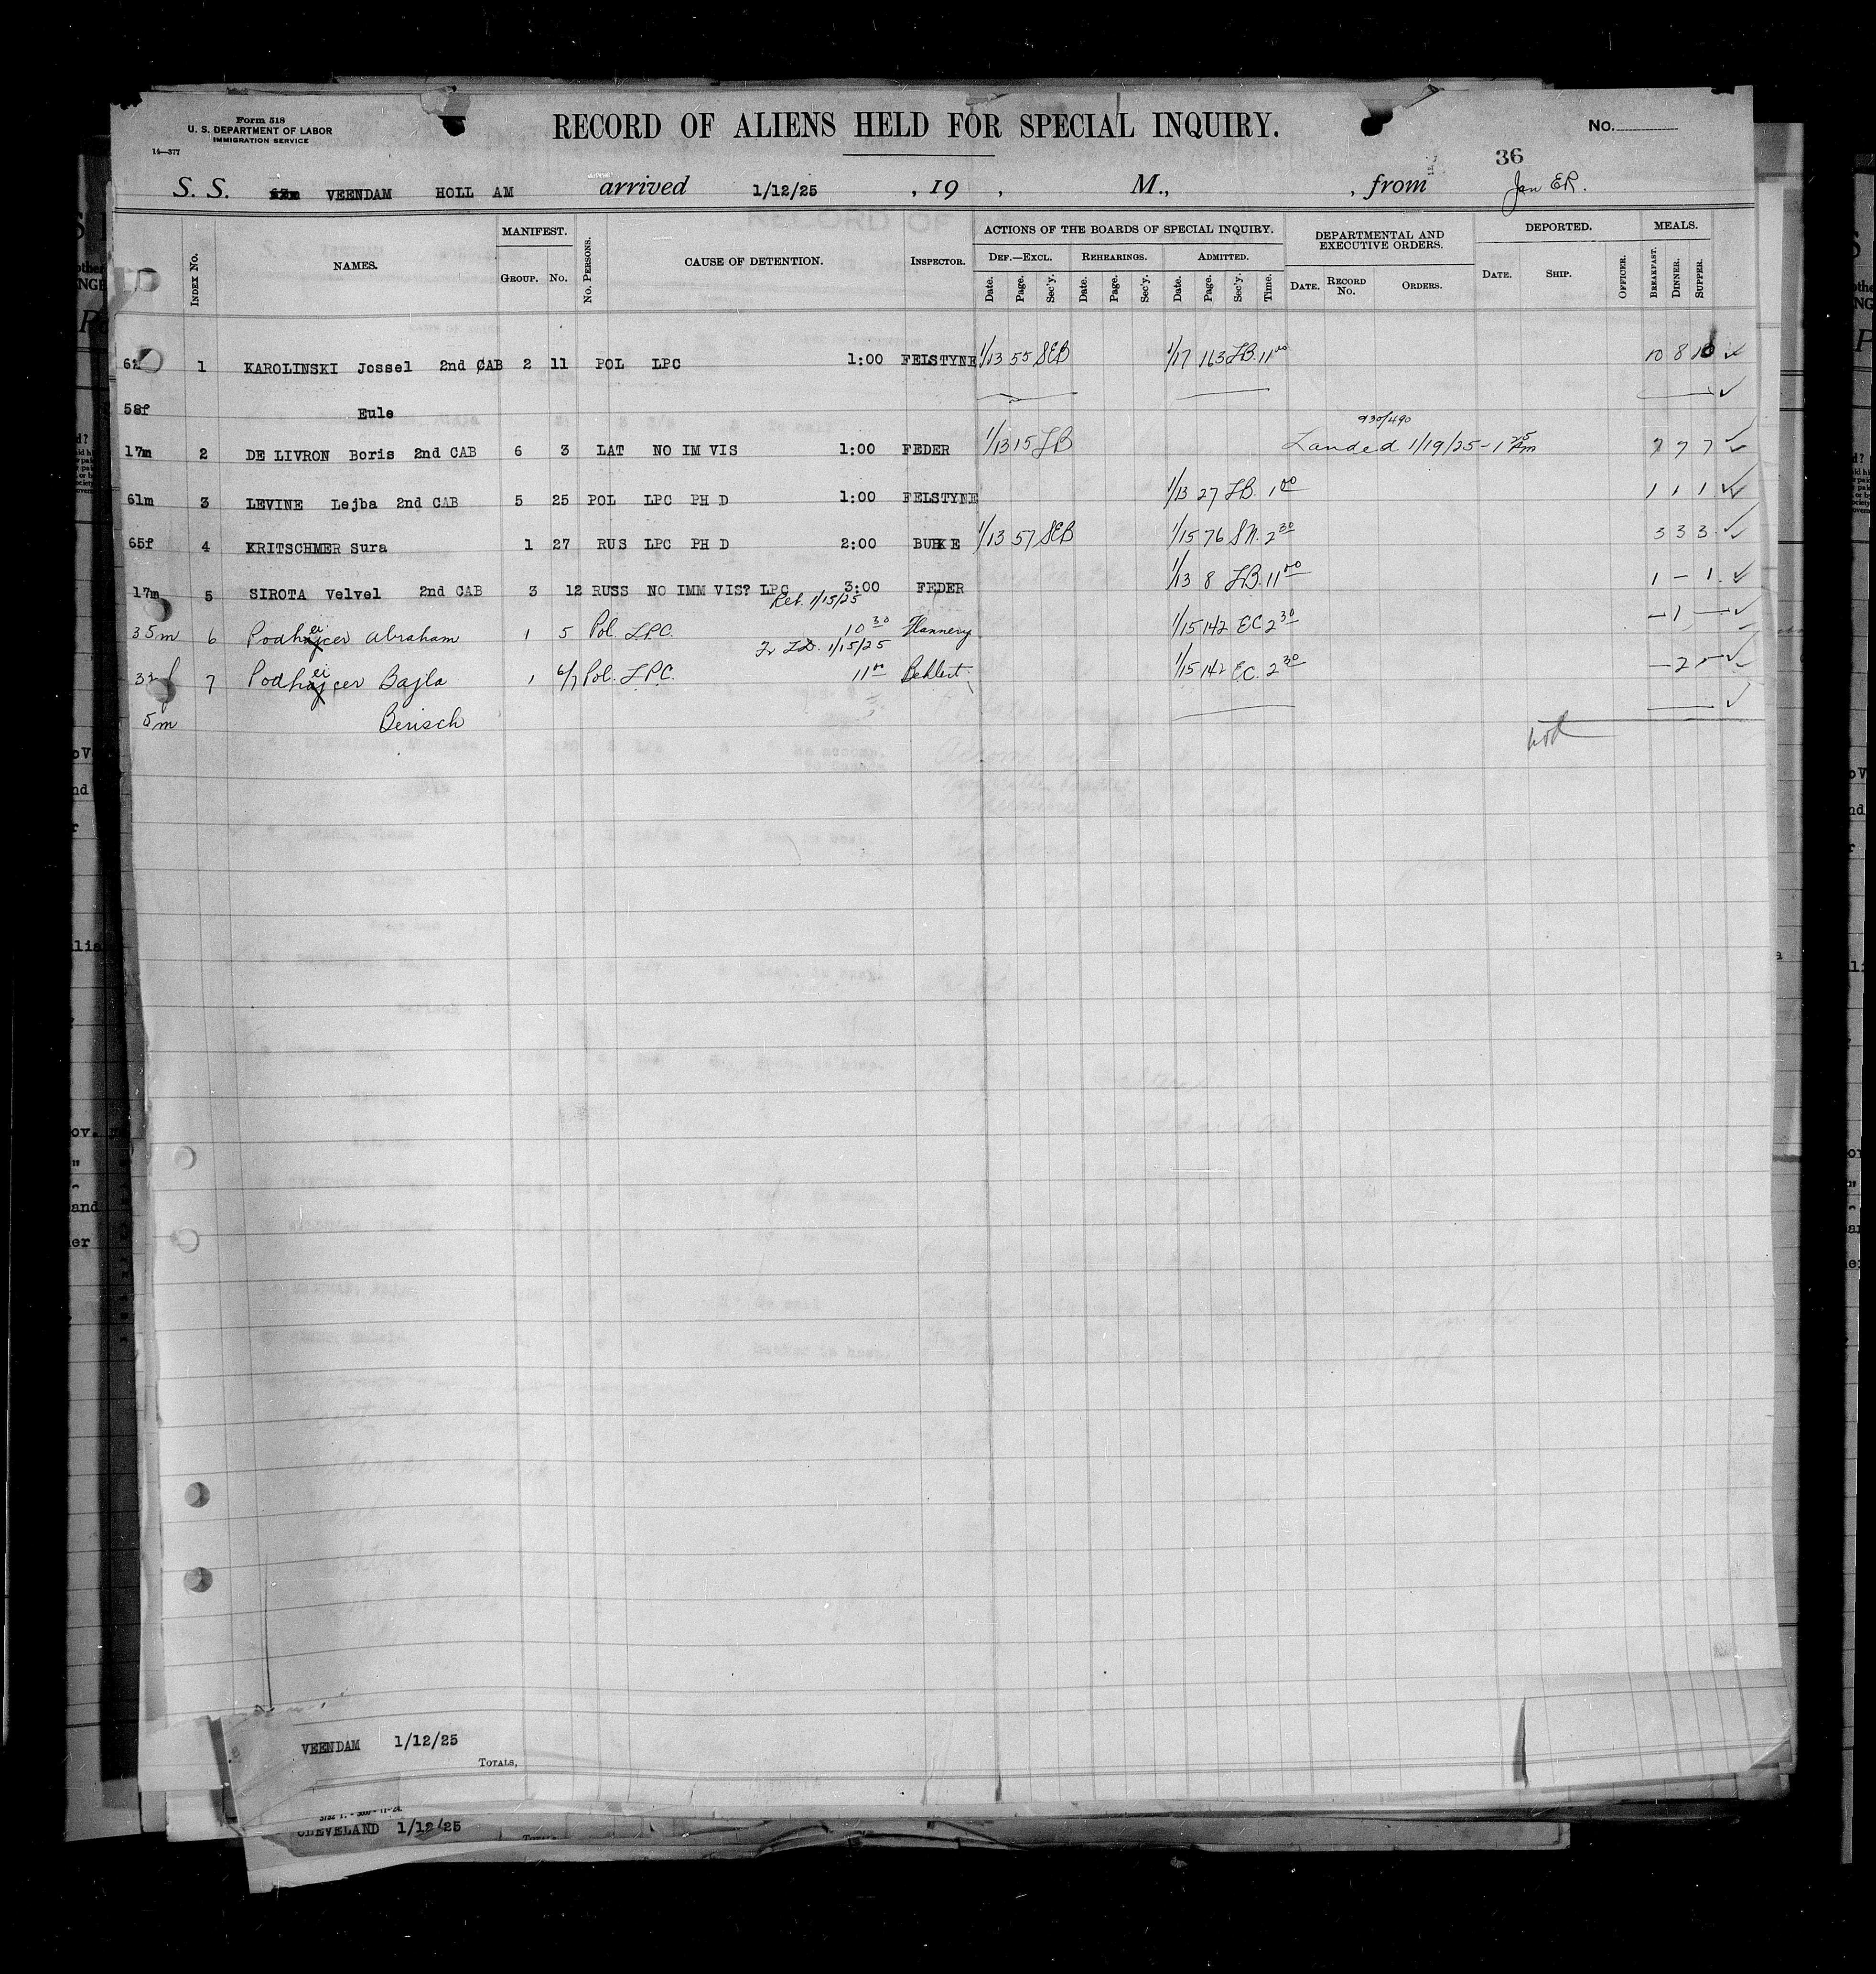 Form 518
U. S. DEPARTMENT OF LABOR
IMMIGRATION SERVICE
14—377
RECORD OF ALIENS HELD FOR SPECIAL INQUIRY.
No.
36
S. S. VEENDAM HOLL AM arrived 1/12/25 , 19 , M., , from Jan ER.
INDEX No. NAMES. MANIFEST. GROUP. No. No. PERSONS. CAUSE OF DETENTION. INSPECTOR. ACTIONS OF THE BOARDS OF SPECIAL INQUIRY. DEF.—EXCL. Date. Page. Sec'y. REHEARINGS. Date. Page. Sec'y. ADMITTED. Date. Page. Sec'y. Time. DEPARTMENTAL AND EXECUTIVE ORDERS. DATE. RECORD No. ORDERS. DEPORTED. DATE. SHIP. OFFICER. MEALS. BREAKFAST. DINNER. SUPPER.
1 KAROLINSKI Jossel 2nd CAB 2 11 POL LPC 1:00 FELSTYNE 1/13 55 SEB 1/17 163 LB. 11 00 10 8 10
58f Eule
930/490
17m 2 DE LIVRON Boris 2nd CAB 6 3 LAT NO IM VIS 1:00 FEDER 1/13 15 LB Landed 1/19/25 - 1 25 Pm 7 7 7
61m 3 LEVINE Lejba 2nd CAB 5 25 POL LPC PH D 1:00 FELSTYNE 1/13 27 LB. 1 00 1 1 1
65f 4 KRITSCHMER Sura 1 27 RUS LPC PH D 2:00 BURKE 1/13 57 SEB 1/15 76 SN. 2 30 3 3 3
17m 5 SIROTA Velvel 2nd CAB 3 12 RUSS NO IMM VIS? LPC 3:00 FEDER 1/13 8 LB. 11 00 1 — 1
Ret. 1/15/25
35m 6 Podheicer Abraham 1 5 Pol. LPC. 10 30 Flannery 1/15 142 EC 2 30 — 1 —
1/15/25
7 Podheicer Bajla 1 6/7 Pol. LPC. 11 00 Behlert 1/15 142 E.C. 2 30 — 2 —
5m Berisch
VEENDAM 1/12/25
TOTALS,
CLEVELAND 1/12/25